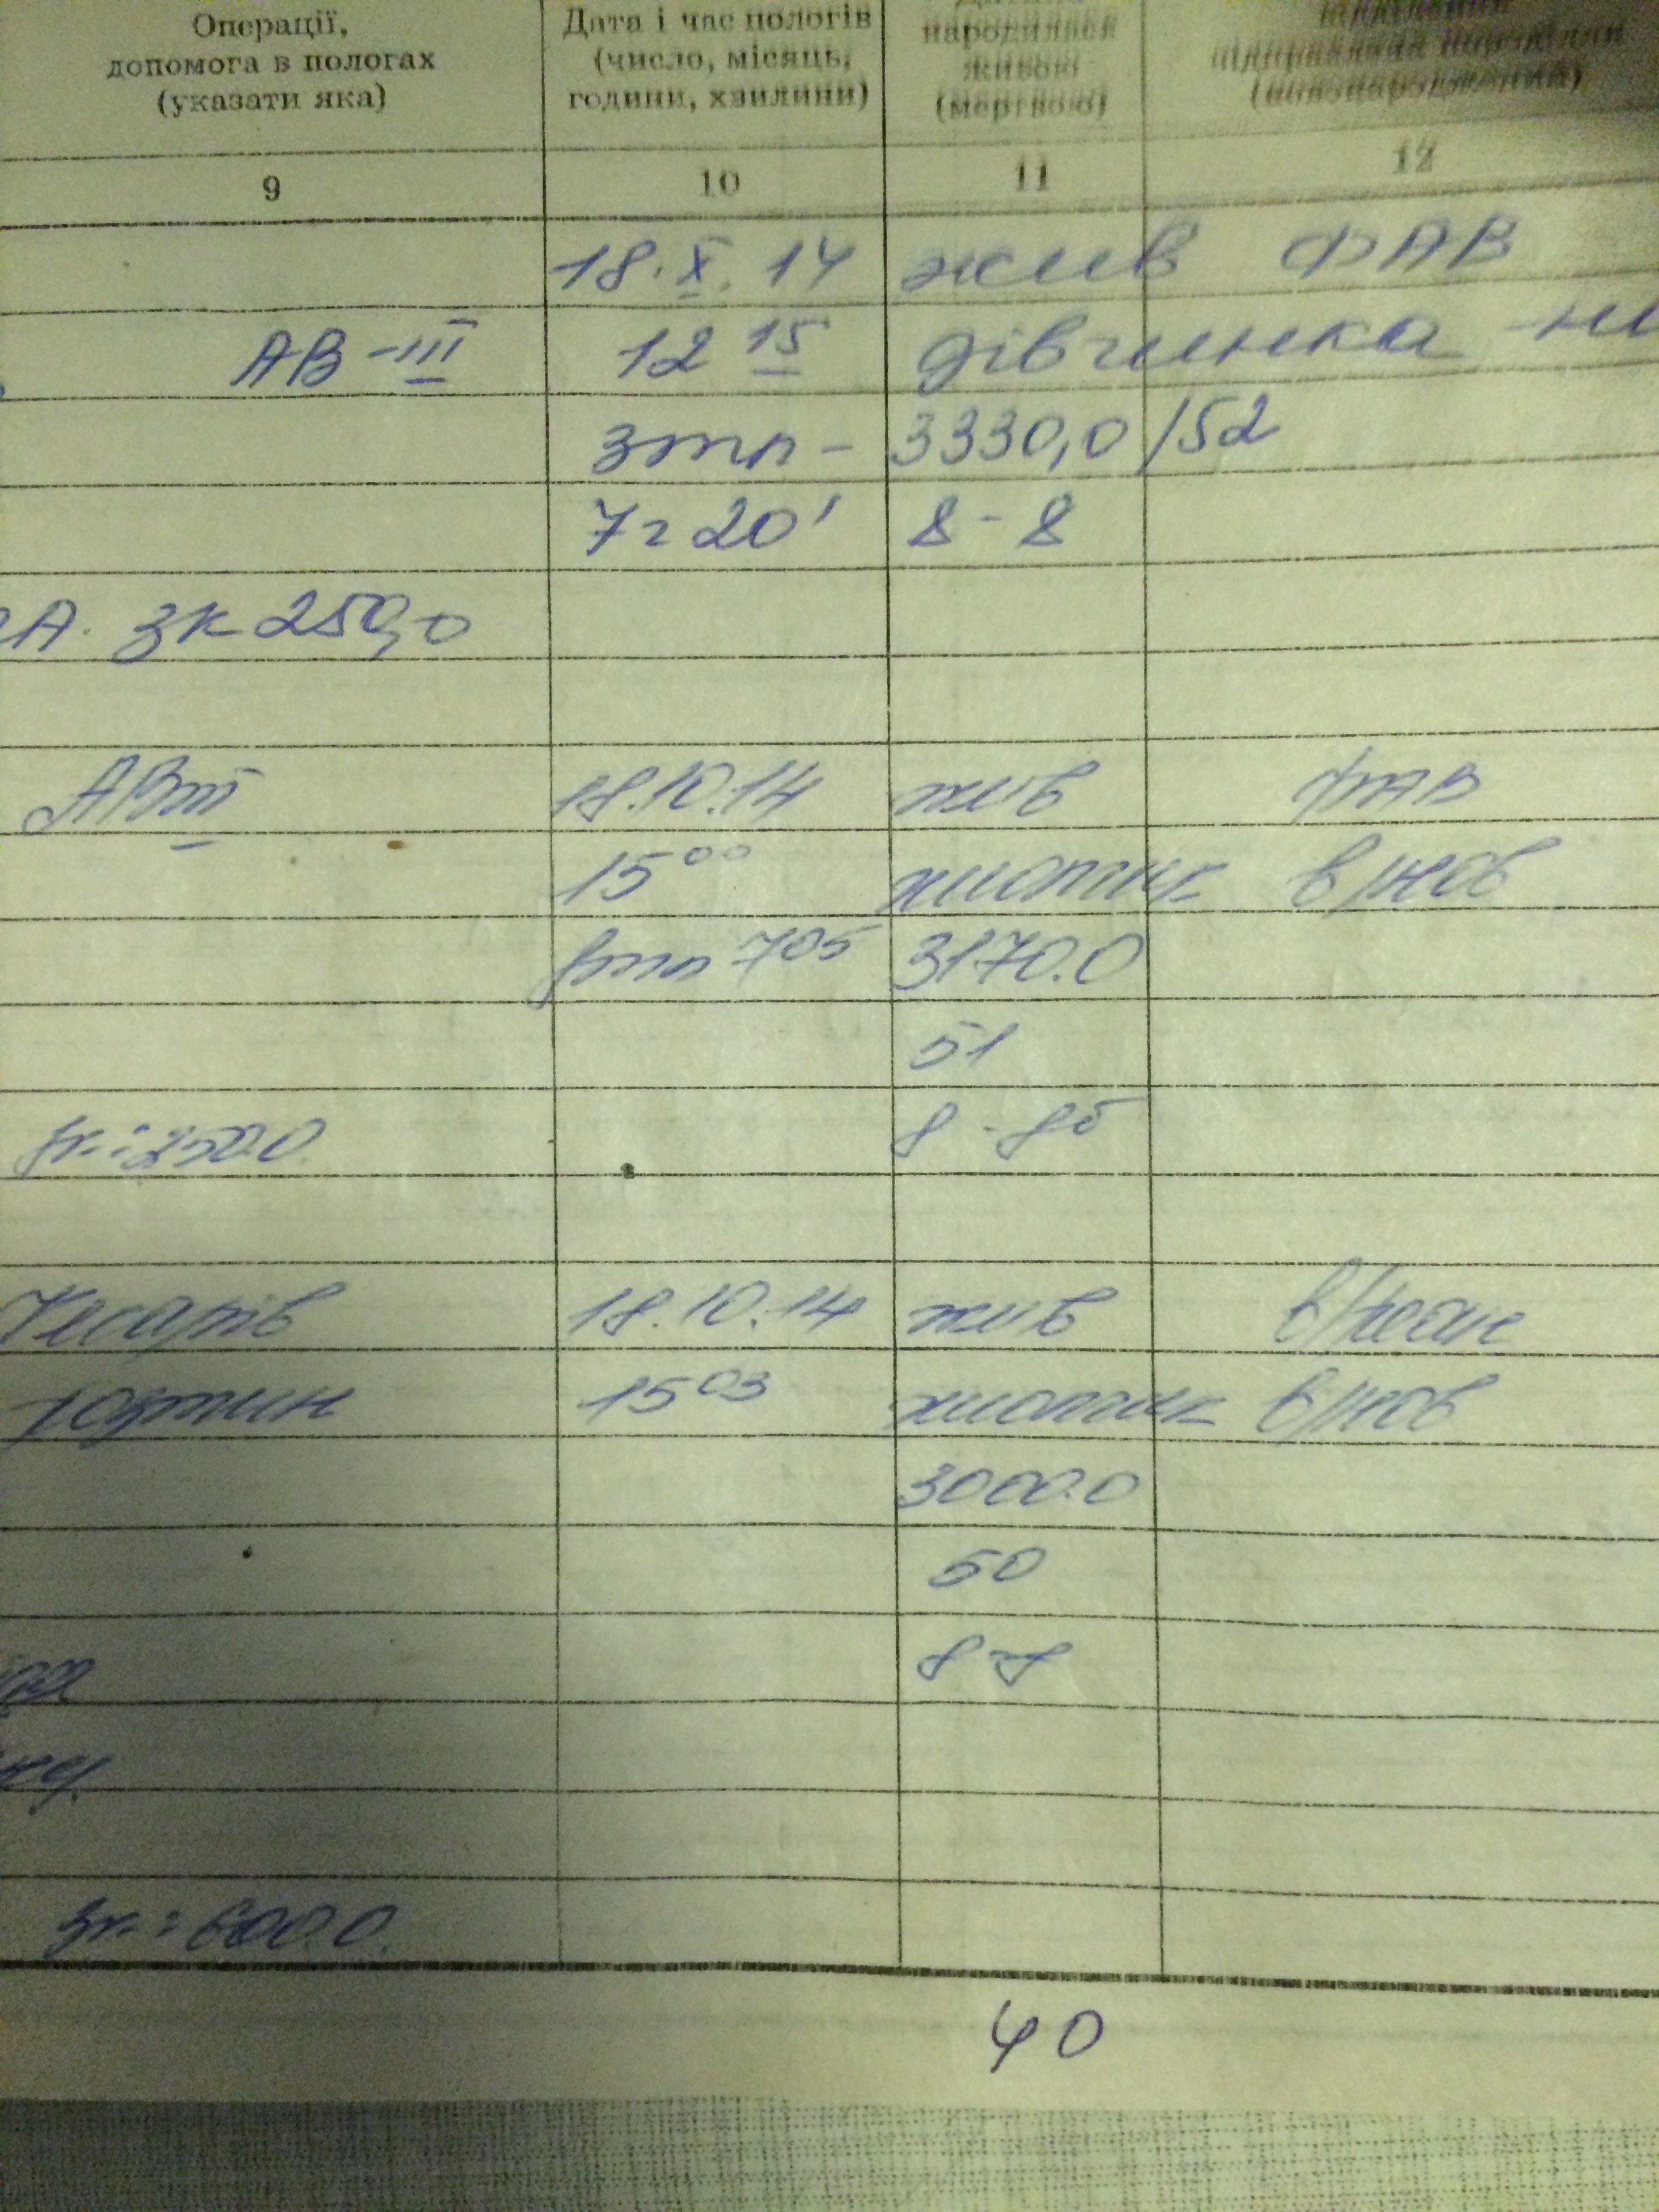 Операції,
допомога в пологах
(указати яка)
Дата і час пологів
(число, місяць,
години, хвилини)
народилася
живою
(мертвою)
(новонародженим)
9 10 11 12
18.X.14 жив ФАВ
АВ-III 12 15 дівчинка
зтп - 3330,0/52
7г 20' 8-8
зк 250,0
АВIII 18.10.14 жив ФАВ
15 00 хлопчик в/нов
7 05 3170.0
51
8-8б
18.10.14 жив
Кесарів
розтин 15 03 хлопчик в/нов
3000.0
50
8-8
зк: 600.0.
40